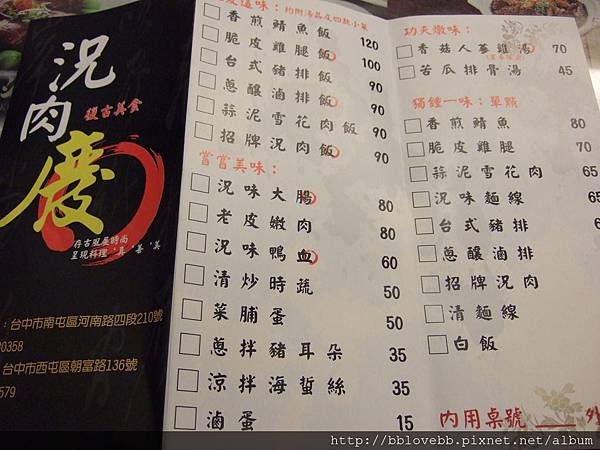 況肉慶
復古美食
存古風展時尚
呈現料理‵真‵善‵美
：台中市南屯區河南路四段210號
0358
台中市西屯區朝富路136號
579
味：均附湯品及四款小菜
香煎鯖魚飯 120
脆皮雞腿飯 100
台式豬排飯 90
蔥釀滷排飯 90
蒜泥雪花肉飯 90
招牌況肉飯 90
嘗嘗美味：
況味大腸 80
老皮嫩肉 80
況味鴨血 60
清炒時蔬 50
菜脯蛋 50
蔥拌豬耳朵 35
涼拌海蜇絲 35
滷蛋 15
功夫燉味：
香菇人蔘雞湯 70
苦瓜排骨湯 45
獨鍾一味：單點
香煎鯖魚 80
脆皮雞腿 70
蒜泥雪花肉 65
況味麵線 65
台式豬排
蔥釀滷排
招牌況肉
清麵線
白飯
內用桌號 ____ 外
http://bblovebb.pixnet.net/album